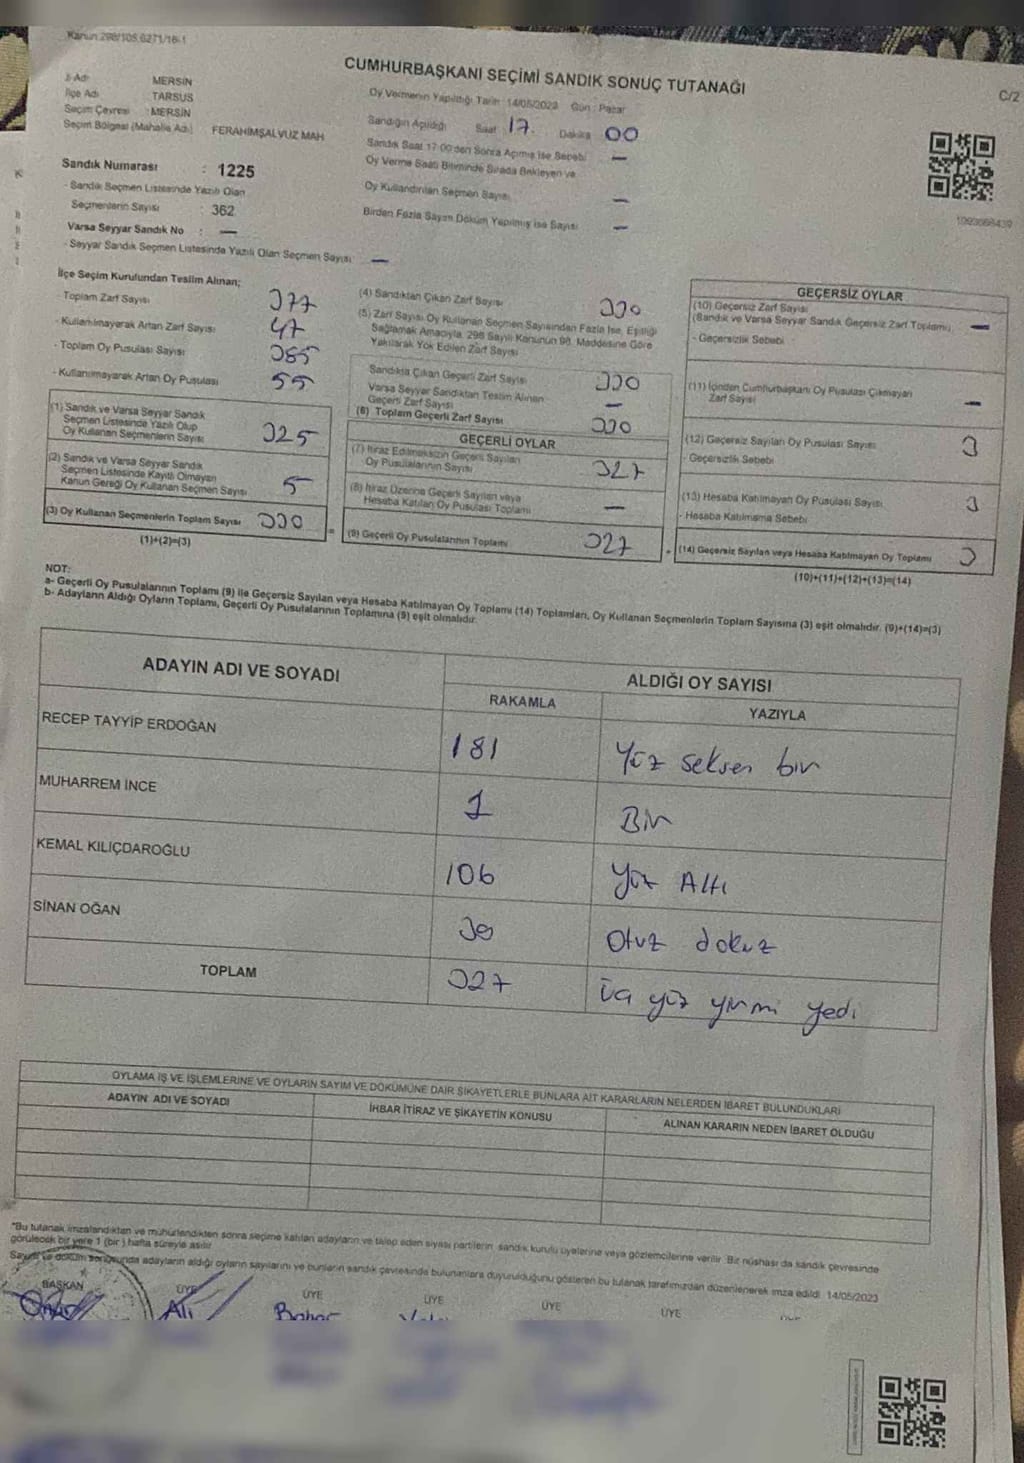 Kanun 298/105 6271/16-1
CUMHURBAŞKANI SEÇİMİ SANDIK SONUÇ TUTANAĞI
C/2
İl Adı MERSİN
İlçe Adı TARSUS
Seçim Çevresi : MERSİN
Seçim Bölgesi (Mahalle Adı) FERAHİMŞALVUZ MAH
Sandık Numarası : 1225
- Sandık Seçmen Listesinde Yazılı Olan
Seçmenlerin Sayısı : 362
Varsa Seyyar Sandık No : —
- Seyyar Sandık Seçmen Listesinde Yazılı Olan Seçmen Sayısı —
Oy Vermenin Yapıldığı Tarih : 14/05/2023 Gün : Pazar
Sandığın Açıldığı Saat : 17. Dakika 00
Sandık Saat 17:00'den Sonra Açılmış İse Sebebi —
Oy Verme Saati Bitiminde Sırada Bekleyen ve
Oy Kullandırılan Seçmen Sayısı —
Birden Fazla Sayım Döküm Yapılmış İse Sayısı —
1093668439
İlçe Seçim Kurulundan Teslim Alınan;
- Toplam Zarf Sayısı 377
- Kullanılmayarak Artan Zarf Sayısı 47
- Toplam Oy Pusulası Sayısı 385
- Kullanılmayarak Artan Oy Pusulası 55
(1) Sandık ve Varsa Seyyar Sandık
Seçmen Listesinde Yazılı Olup
Oy Kullanan Seçmenlerin Sayısı 325
(2) Sandık ve Varsa Seyyar Sandık
Seçmen Listesinde Kayıtlı Olmayan
Kanun Gereği Oy Kullanan Seçmen Sayısı 5
(3) Oy Kullanan Seçmenlerin Toplam Sayısı 330
(1)+(2)=(3)
(4) Sandıktan Çıkan Zarf Sayısı 330
(5) Zarf Sayısı Oy Kullanan Seçmen Sayısından Fazla İse, Eşitliği
Sağlamak Amacıyla, 298 Sayılı Kanunun 98. Maddesine Göre
Yakılarak Yok Edilen Zarf Sayısı
Sandıkta Çıkan Geçerli Zarf Sayısı 330
Varsa Seyyar Sandıktan Teslim Alınan
Geçerli Zarf Sayısı —
(6) Toplam Geçerli Zarf Sayısı 330
GEÇERLİ OYLAR
(7) İtiraz Edilmeksizin Geçerli Sayılan
Oy Pusulalarının Sayısı 327
(8) İtiraz Üzerine Geçerli Sayılan veya
Hesaba Katılan Oy Pusulası Toplamı —
(9) Geçerli Oy Pusulalarının Toplamı 327
GEÇERSİZ OYLAR
(10) Geçersiz Zarf Sayısı
(Sandık ve Varsa Seyyar Sandık Geçersiz Zarf Toplamı) —
- Geçersizlik Sebebi
(11) İçinden Cumhurbaşkanı Oy Pusulası Çıkmayan
Zarf Sayısı —
(12) Geçersiz Sayılan Oy Pusulası Sayısı 3
- Geçersizlik Sebebi
(13) Hesaba Katılmayan Oy Pusulası Sayısı 3
- Hesaba Katılmama Sebebi
(14) Geçersiz Sayılan veya Hesaba Katılmayan Oy Toplamı 3
(10)+(11)+(12)+(13)=(14)
NOT:
a- Geçerli Oy Pusulalarının Toplamı (9) ile Geçersiz Sayılan veya Hesaba Katılmayan Oy Toplamı (14) Toplamları, Oy Kullanan Seçmenlerin Toplam Sayısına (3) eşit olmalıdır. (9)+(14)=(3)
b- Adayların Aldığı Oyların Toplamı, Geçerli Oy Pusulalarının Toplamına (9) eşit olmalıdır.
ADAYIN ADI VE SOYADI
ALDIĞI OY SAYISI
RAKAMLA YAZIYLA
RECEP TAYYİP ERDOĞAN 181 Yüz seksen bir
MUHARREM İNCE 1 Bir
KEMAL KILIÇDAROĞLU 106 Yüz Altı
SİNAN OĞAN 39 Otuz dokuz
TOPLAM 327 Üç yüz yirmi yedi
OYLAMA İŞ VE İŞLEMLERİNE VE OYLARIN SAYIM VE DÖKÜMÜNE DAİR ŞİKAYETLERLE BUNLARA AİT KARARLARIN NELERDEN İBARET BULUNDUKLARI
ADAYIN ADI VE SOYADI İHBAR İTİRAZ VE ŞİKAYETİN KONUSU ALINAN KARARIN NEDEN İBARET OLDUĞU
*Bu tutanak imzalandıktan ve mühürlendikten sonra seçime katılan adayların ve talep eden siyasi partilerin sandık kurulu üyelerine veya gözlemcilerine verilir. Bir nüshası da sandık çevresinde
görülecek bir yere 1 (bir) hafta süreyle asılır.
Sayım ve döküm sonucunda adayların aldığı oyların sayılarını ve bunların sandık çevresinde bulunanlara duyurulduğunu gösteren bu tutanak tarafımızdan düzenlenerek imza edildi. 14/05/2023
BAŞKAN ÜYE ÜYE ÜYE ÜYE ÜYE ÜYE
Onur Ali Bahar